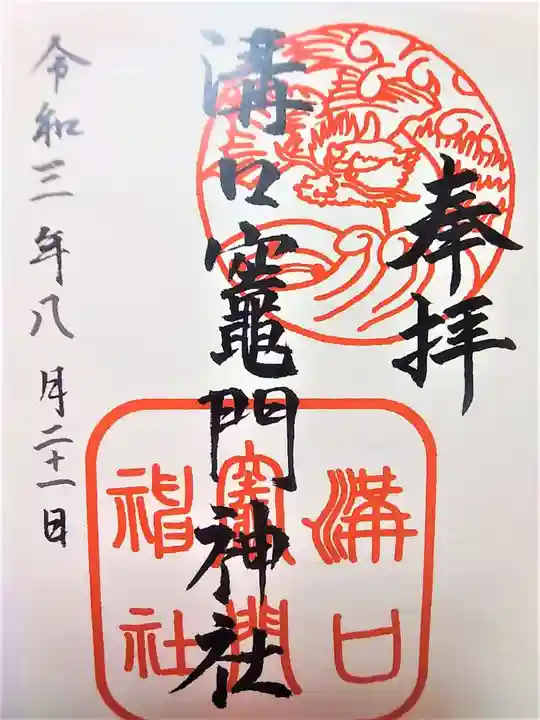 奉拝
溝口竈門神社
溝口
竈門
神社
令和三年八月二十一日